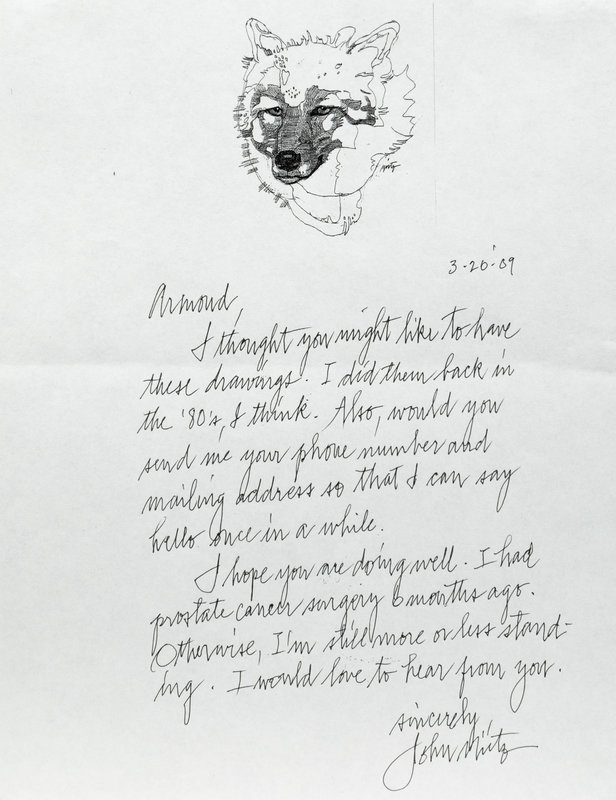 3-20-09
Armond,
I thought you might like to have
these drawings. I did them back in
the '80's, I think. Also, would you
send me your phone number and
mailing address so that I can say
hello once in a while.
I hope you are doing well. I had
prostate cancer surgery 6 months ago.
Otherwise, I'm still more or less stand-
ing. I would love to hear from you.
sincerely,
John